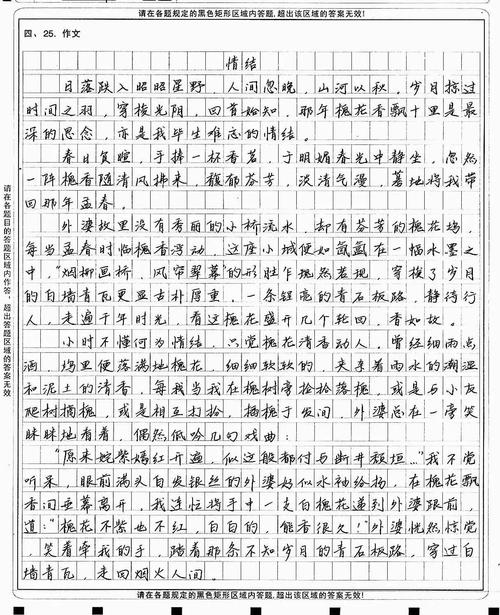 请在各题规定的黑色矩形区域内答题,超出该区域的答案无效!
四、25. 作文
情结
日落跌入昭昭星野,人间忽晚,山河以秋,岁月掠过
时间之羽,穿梭光阴,回首始知,那年槐花香飘十里是最
深的思念,亦是我毕生难忘的情结。
春日负暄,手捧一杯香茗,于明媚春光中静坐,忽然
一阵槐香随清风拂来,馥郁芬芳,淡清气漫,蓦地将我带
回那年孟春。
外婆故里没有秀丽的小桥流水,却有芬芳的槐花坞,
每当孟春时临槐香浮动,这座小城便如氤氲在一幅水墨之
中,“烟柳画桥,风帘翠幕”的形胜乍现然若现,穿梭了岁月
的白墙青瓦更显古朴厚重,一条锃亮的青石板路,静待行
人,走遍千年时光,看这槐花盛开几个轮回,香如故。
小时不懂何为情结,只觉槐花清香动人,曾经细雨点
洒,坞里便落满地槐花,细细软软的,夹杂着雨水的潮湿
和泥土的清香,每我当我在槐树旁捡拾落槐,或是与小友
爬树摘槐,或是相互打拾,插槐于发间,外婆总在一旁笑
眯眯地看着,偶然低吟几句戏曲:
“原来姹紫嫣红开遍,似这般都付与断井颓垣…”我不觉
听来,眼前满头白发银丝的外婆好似水袖给扬,在槐花飘
香间幕离开,我连忙将手中一支白槐花递到外婆跟前,
道:“槐花不紫也不红,白白的,能香很久!”外婆恍然惊觉
,笑着牵我的手,踏着那条不知岁月的青石板路,穿过白
墙青瓦,走回烟火人间。
请在各题规定的黑色矩形区域内答题,超出该区域的答案无效!
请在各题目的答题区域内作答,超出答题区域的答案无效